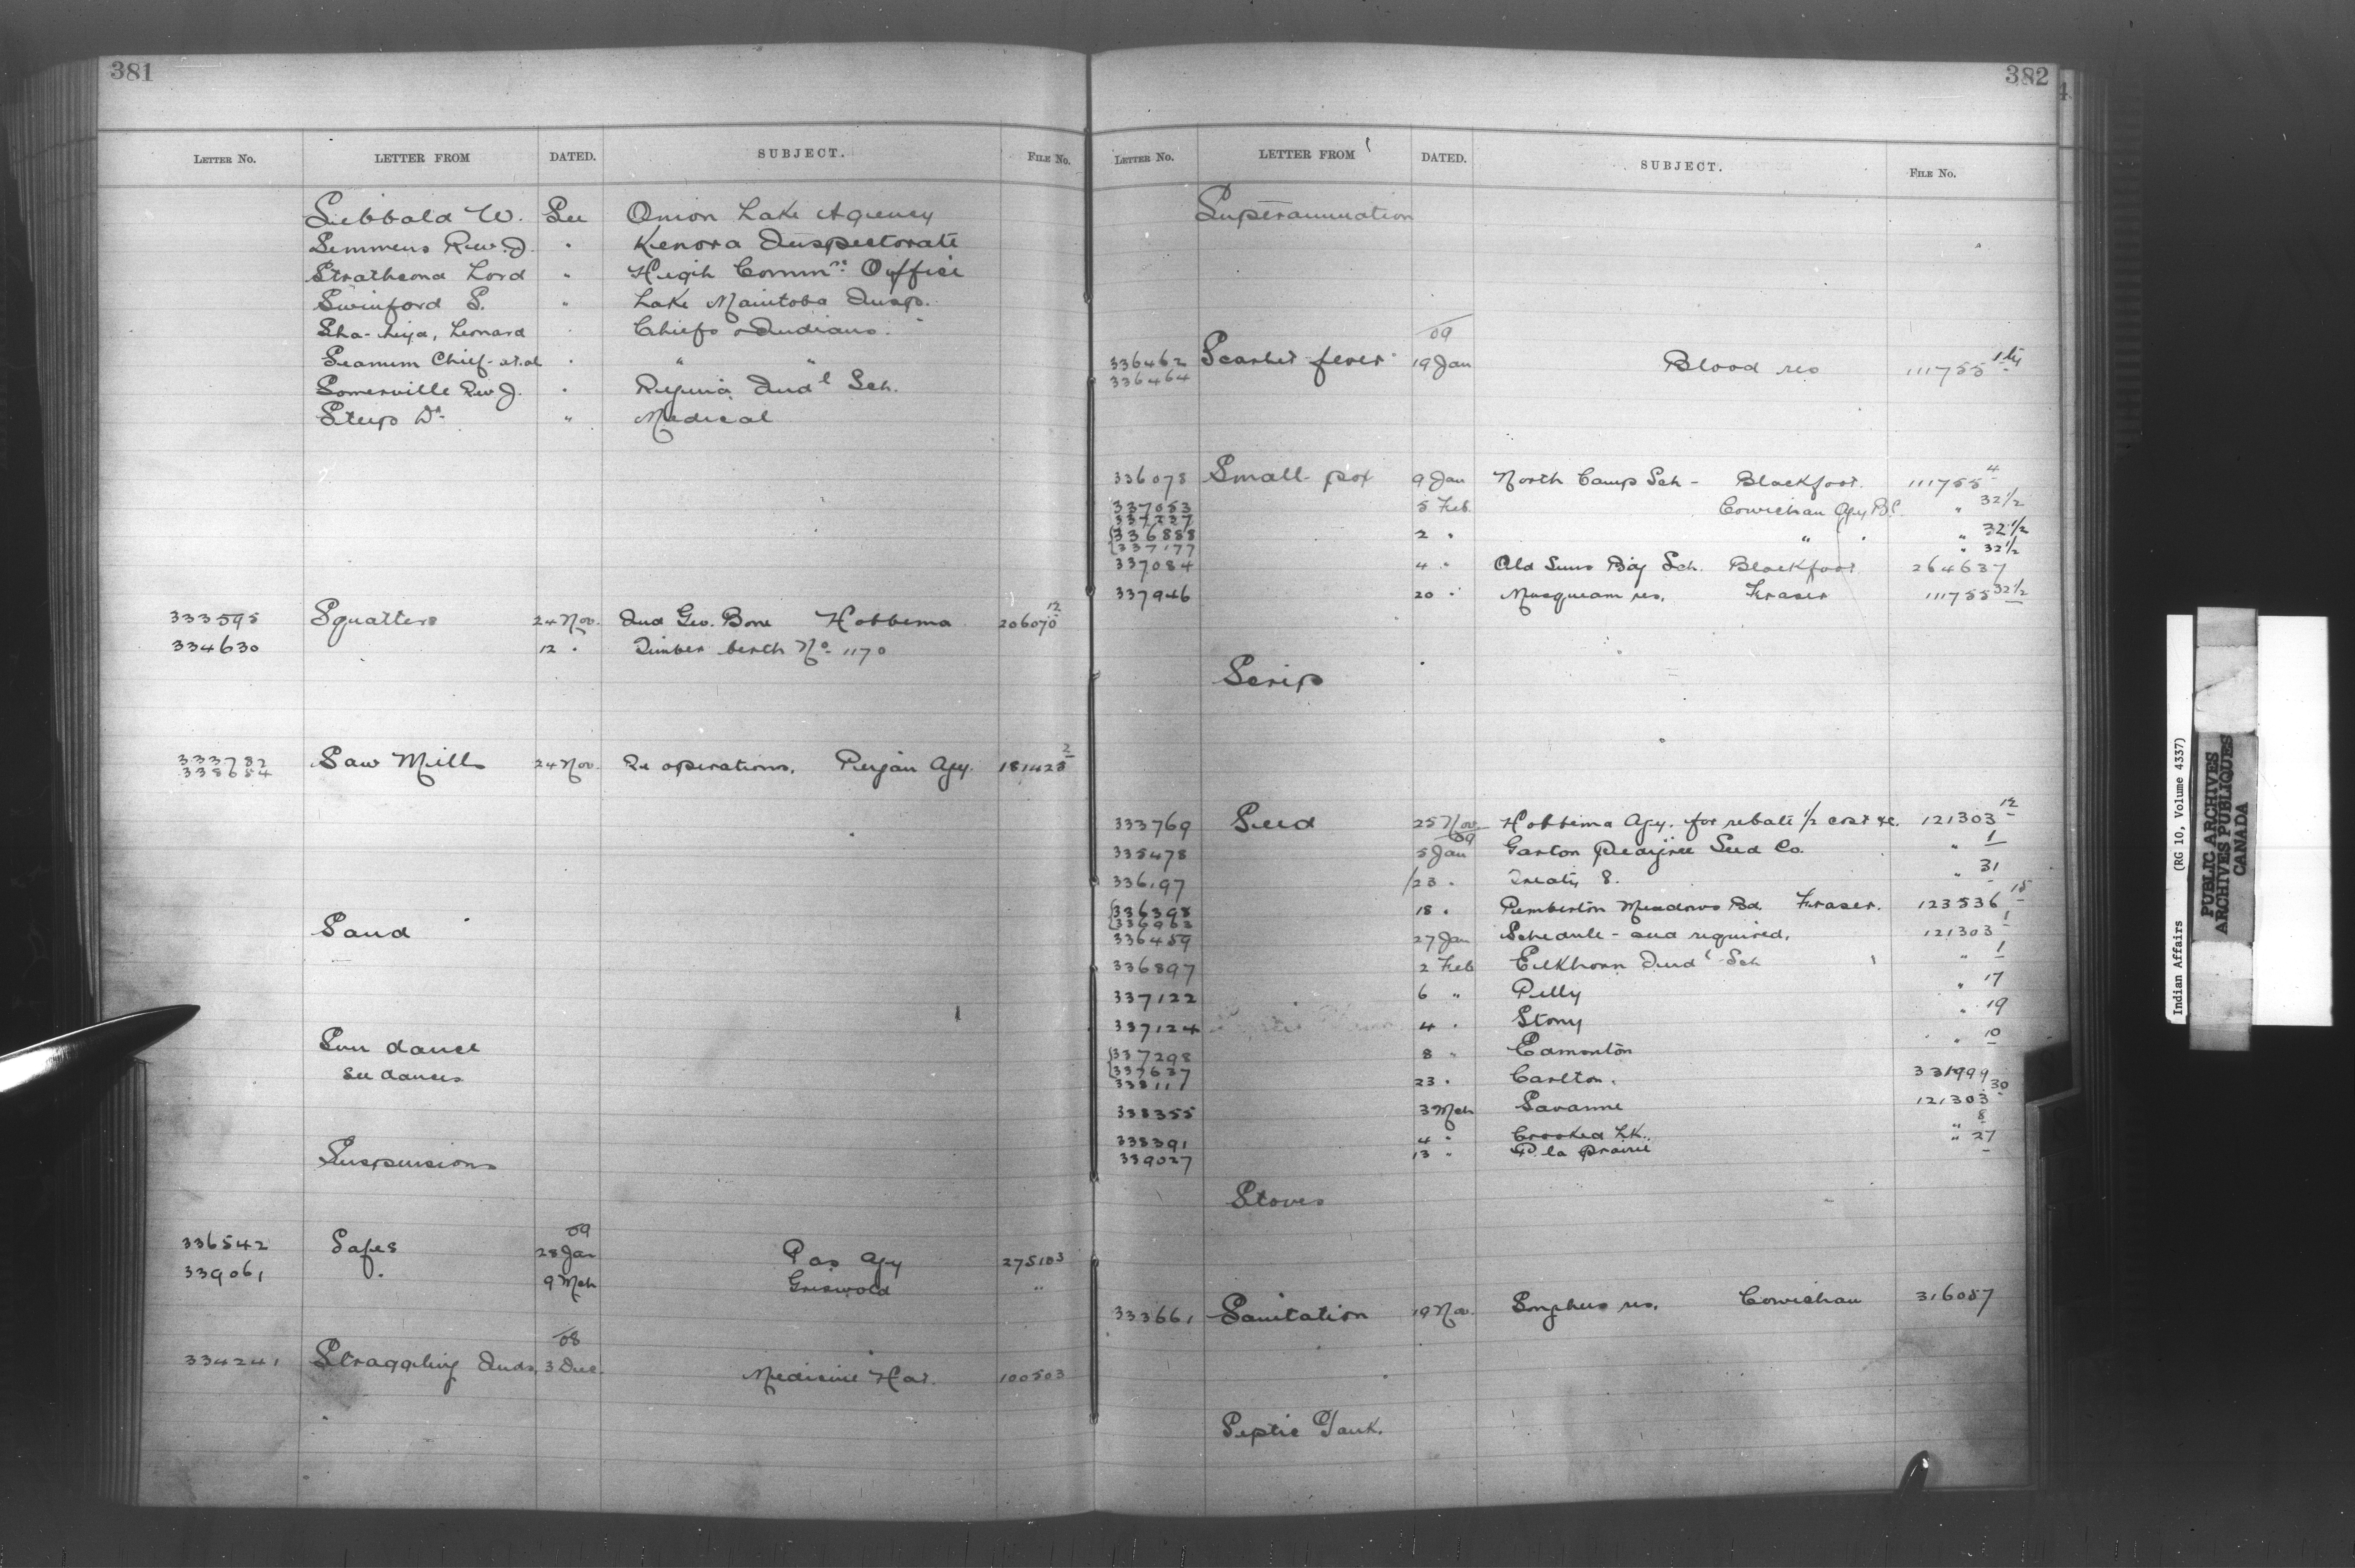 381
LETTER No. LETTER FROM DATED. SUBJECT. FILE No.
Sibbald W. See Onion Lake Agency
Semmens Rev. J. " Kenora Inspectorate
Strathcona Lord " High Commrs Office
Swinford S. " Lake Manitoba Insp.
Leonard " Chiefs & Indians.
Seamem Chief et al " " "
Somerville Rev J. " Regina Indl Sch.
Steep Dr. " Medical
333595 Squatters 24 Nov. Ind Geo. Bone Hobbema 206070 12
334630 12 " Timber berth No. 1170
333782 Saw Mills 24 Nov. Re operations. Agy. 181428 2
338654
Sand
Sun dance
see dances
Suspensions
09
336542 Safes 28 Jan Pas Agy 275103
339061 " 9 Mch Griswold "
08
334241 Straggling Inds. 3 Dec. Medicine Hat. 100503
382
LETTER No. LETTER FROM DATED. SUBJECT. FILE No.
Superannuation
09
336462 Scarlet fever 19 Jan Blood res 111755
336464
336078 Small pox 9 Jan North Camp Sch - Blackfoot. 111755 4
337053 5 Feb. Cowichan Agy B.C. " 32 1/2
337227
336888 2 " " " " 32 1/2
337177 " 32 1/2
337084 4 " Old Suns Bdg Sch. Blackfoot 264637
337946 20 " Musqueam res. Fraser 111755 32 1/2
Scrip
333769 Seed 25 Nov Hobbema Agy. for rebate 1/2 cost &c. 121303 12
09
335478 5 Jan Garton Pedigree Seed Co. " 1
336197 23 " Treaty 8. " 31
336398 18 " Pemberton Meadows Bd. Fraser. 123536 15
336963
336459 27 Jan Schedule - seed required. 121303 1
336897 2 Feb Elkhorn Indl Sch " 1
337122 6 " Pelly " 17
337124 4 " Stony " 19
337298 8 " Edmonton " 10
337637
338111 23 " Carlton. 331999
338355 3 Mch Savanne 121303 30
338391 4 " Crooked Lk. " 8
339027 13 " P. la Prairie " 27
Stoves
333661 Sanitation 19 Nov. Songhees res. Cowichan 316057
Septic Tank.
Indian Affairs (RG 10, Volume 4337)
PUBLIC ARCHIVES
ARCHIVES PUBLIQUES
CANADA